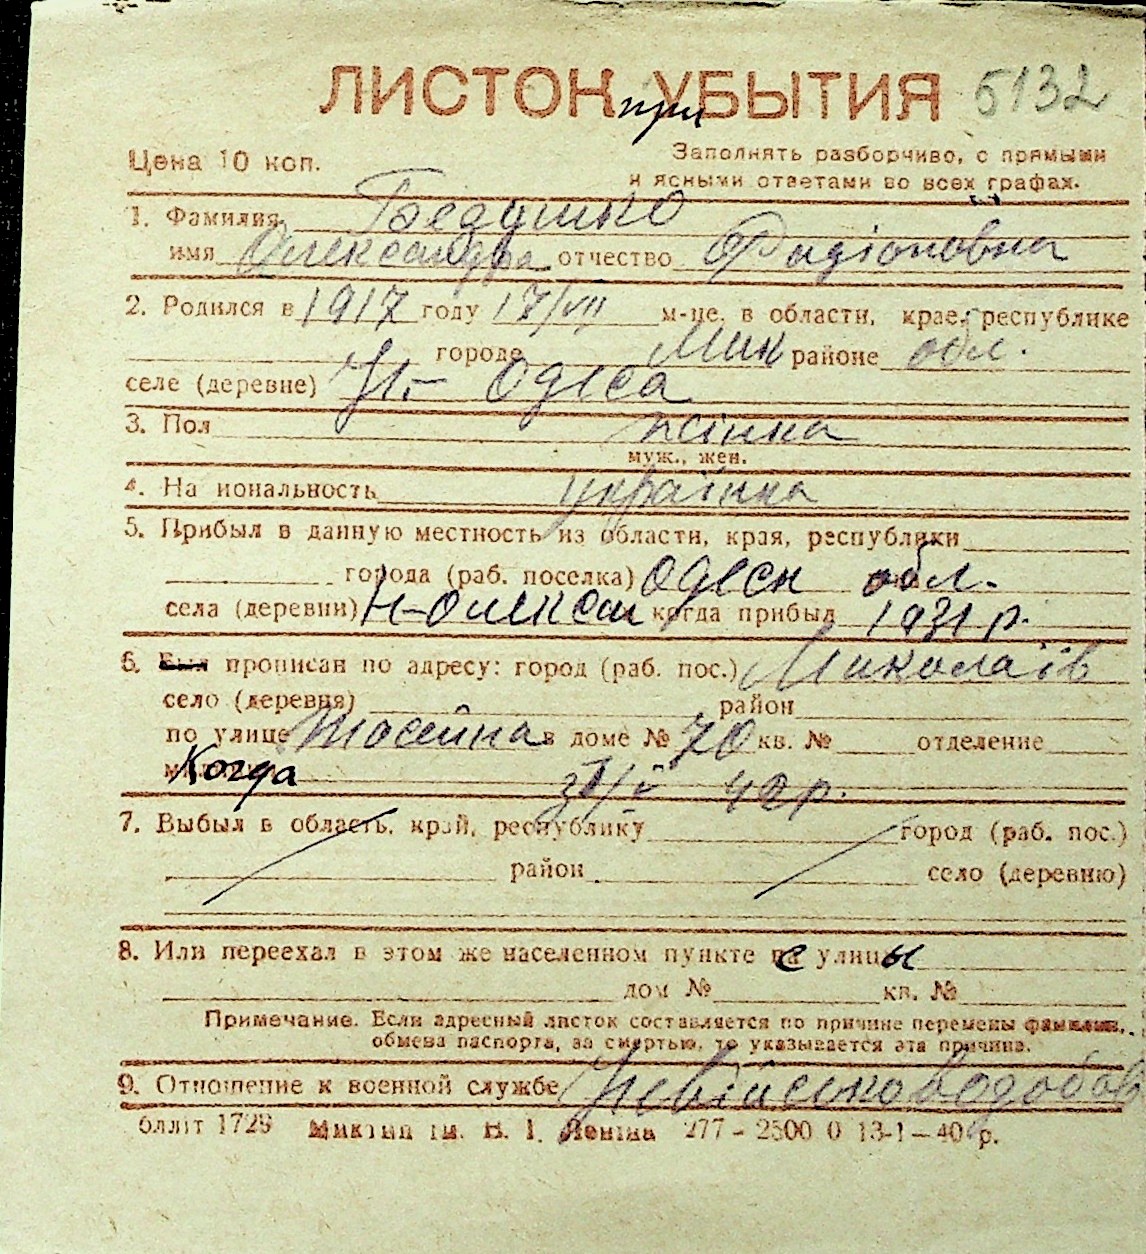 ЛИСТОК при УБЫТИЯ 5132
Цена 10 коп.
Заполнять разборчиво, с прямыми
и ясными ответами во всех графах.
1. Фамилия
имя Олександра отчество Фадіоновна
2. Родился в 1917 году 17/VII м-це, в области, крае, республике
городе Мик районе обл.
селе (деревне) Н- Одеса
3. Пол жінка
муж., жен.
4. На иональность українка
5. Прибыл в данную местность из области, края, республики
города (раб. поселка) Одеск обл.
села (деревни) когда прибыл 1931 р.
6. Был прописан по адресу: город (раб. пос.) Миколаїв
село (деревня) район
по улице в доме № 70 кв. № отделение
Когда 42 р.
7. Выбыл в область, край, республику город (раб. пос.)
район село (деревню)
8. Или переехал в этом же населенном пункте с улицы
дом № кв. №
Примечание. Если адресный листок составляется по причине перемены фамилии,
обмена паспорта, за смертью, то указывается эта причина.
9. Отношение к военной службе Невійськовозобов
бллт 1729 Миктип ім. В. І. Леніна 277 - 2500 0 13-1-40 р.